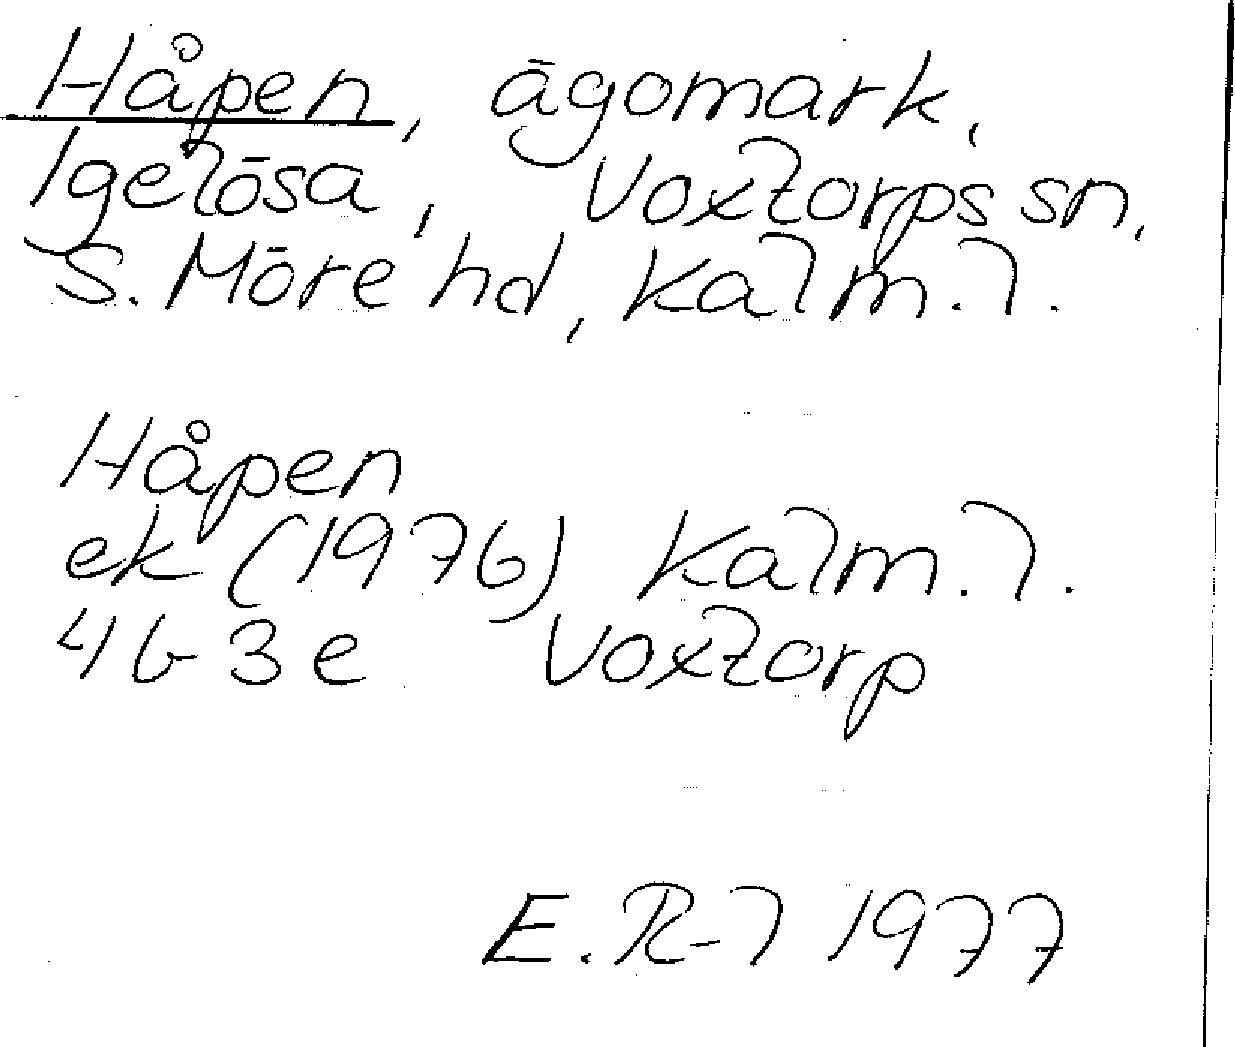 Håpen, ägomark,
Igelösa, Voxtorps sn,
S. Möre hd, Kalm. l.
Håpen
ek (1976) Kalm. l.
4G 3e Voxtorp
E. R-l 1977